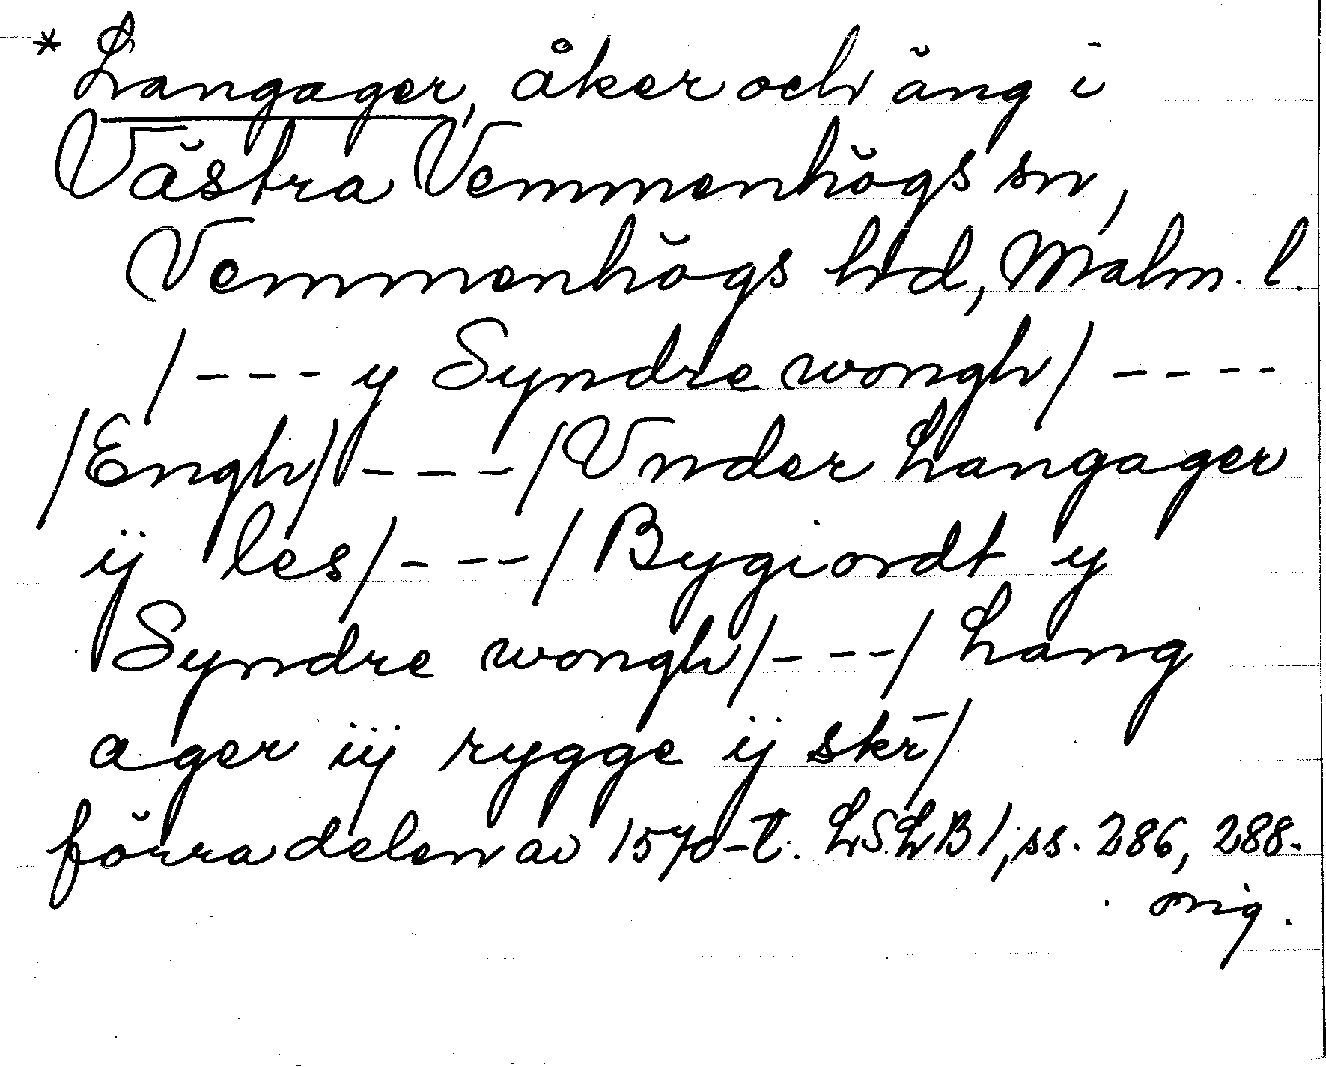 * Langager, åker och äng i
Västra Vemmenhögs sn,
Vemmenhögs hd, Malm. l.
/--- y Syndre wongh/ ----
/Engh/ ---/Vnder Langager
ij les/---/Bygiordt y
Syndre wongh/---/Lang
ager iij rygge ij skr̄/
förra delen av 1570-t. LSLB1, ss. 286, 288.
orig.